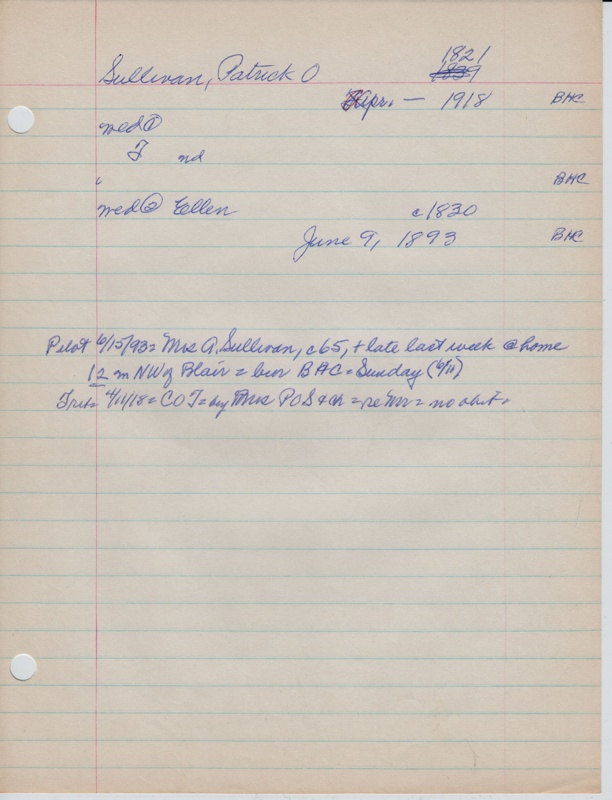 1821
Sullivan, Patrick O 1839
Apr. — 1918 BHC
wed ①
F nd
BHC
wed ② Ellen c1830
June 9, 1893 BHC
Pilot 6/15/93 = Mrs A. Sullivan, c65, + late last week @ home
12 m NW of Blair = bur BHC = Sunday (6/11)
Trib = 4/11/18 = COT = by Mrs POS & ch = re Mr = no obit.